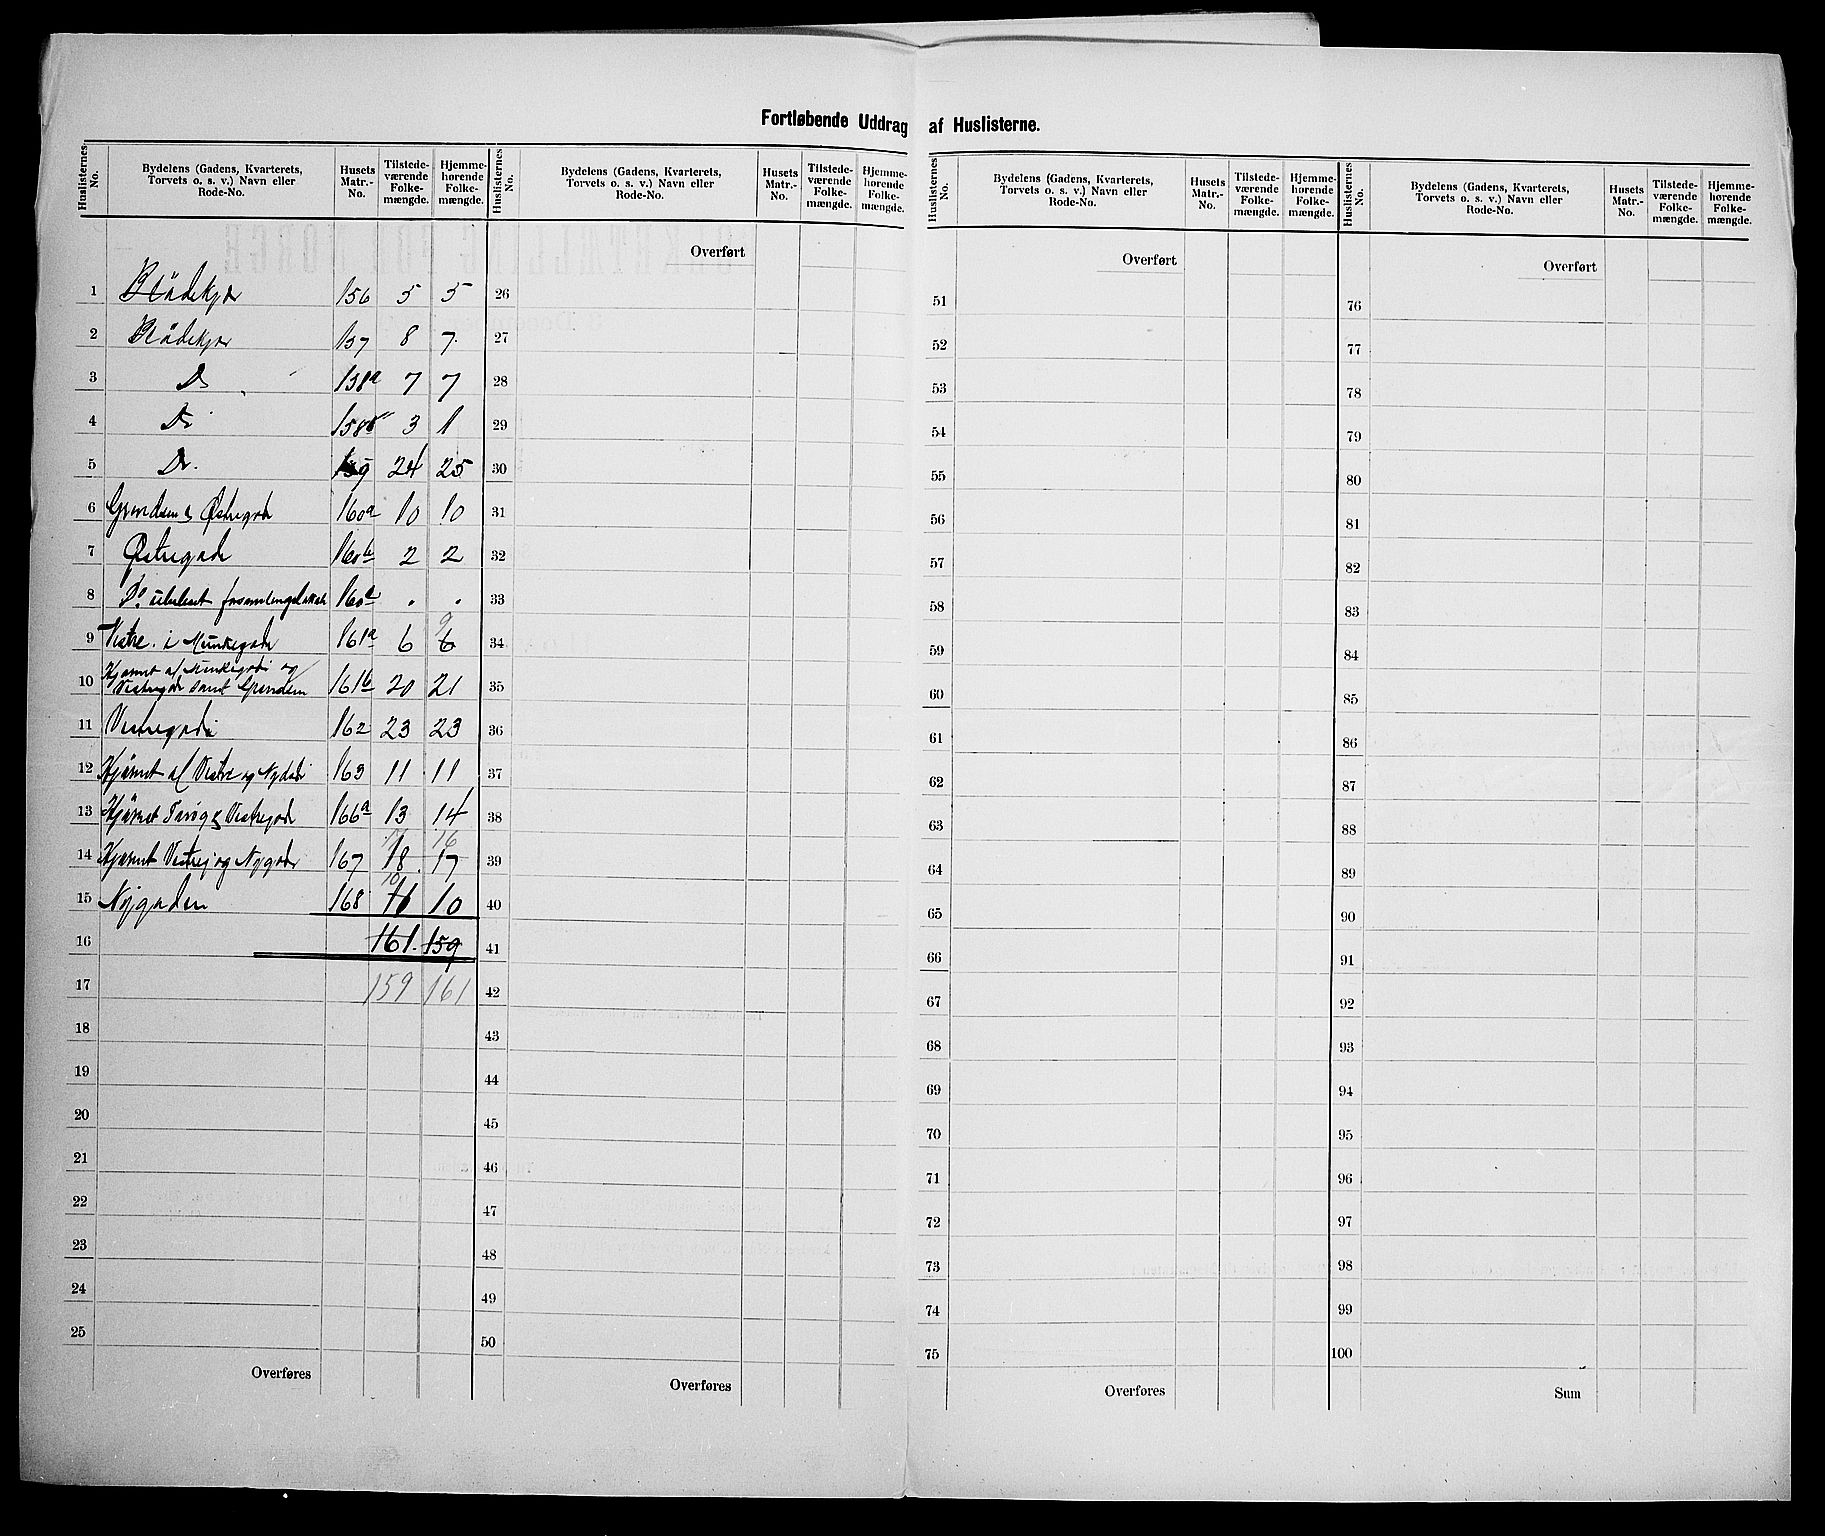 Fortløbende Uddrag af Huslisterne.
Huslisternes No. | Bydelens (Gadens, Kvarterets, Torvets o. s. v.) Navn eller Rode-No. | Husets Matr.-No. | Tilstedeværende Folkemængde. | Hjemmehørende Folkemængde. | Huslisternes No. | Bydelens (Gadens, Kvarterets, Torvets o. s. v.) Navn eller Rode-No. | Husets Matr.-No. | Tilstedeværende Folkemængde. | Hjemmehørende Folkemængde. | Huslisternes No. | Bydelens (Gadens, Kvarterets, Torvets o. s. v.) Navn eller Rode-No. | Husets Matr.-No. | Tilstedeværende Folkemængde. | Hjemmehørende Folkemængde. | Huslisternes No. | Bydelens (Gadens, Kvarterets, Torvets o. s. v.) Navn eller Rode-No. | Husets Matr.-No. | Tilstedeværende Folkemængde. | Hjemmehørende Folkemængde.
Overført Overført Overført
1 Blödekjær 156 5 5 26 51 76
2 Blödekjær 157 8 7 27 52 77
3 Do 158a 7 7 28 53 78
4 Do 158b 3 1 29 54 79
5 Do. 159 24 25 30 55 80
6 Østregade 160a 10 10 31 56 81
7 Østregade 160b 2 2 32 57 82
8 Do. 160a . . 33 58 83
9 Vestre. i Munkegade 161a 6 6 9 34 59 84
10 Hjørnet af Munkegade og
Vestregade samt 161b 20 21 35 60 85
11 Vestregade 162 23 23 36 61 86
12 Hjørnet af Vestre og Nygade 163 11 11 37 62 87
13 Hjørnet Torvet & Vestregade 166a 13 14 38 63 88
14 Hjørnet Vestreg og Nygade 167 18 17 16 39 64 89
15 Nygaden 168 11 10 10 40 65 90
16 161. 159 41 66 91
17 159 161 42 67 92
18 43 68 93
19 44 69 94
20 45 70 95
21 46 71 96
22 47 72 97
23 48 73 98
24 49 74 99
25 50 75 100
Overføres Overføres Overføres Sum